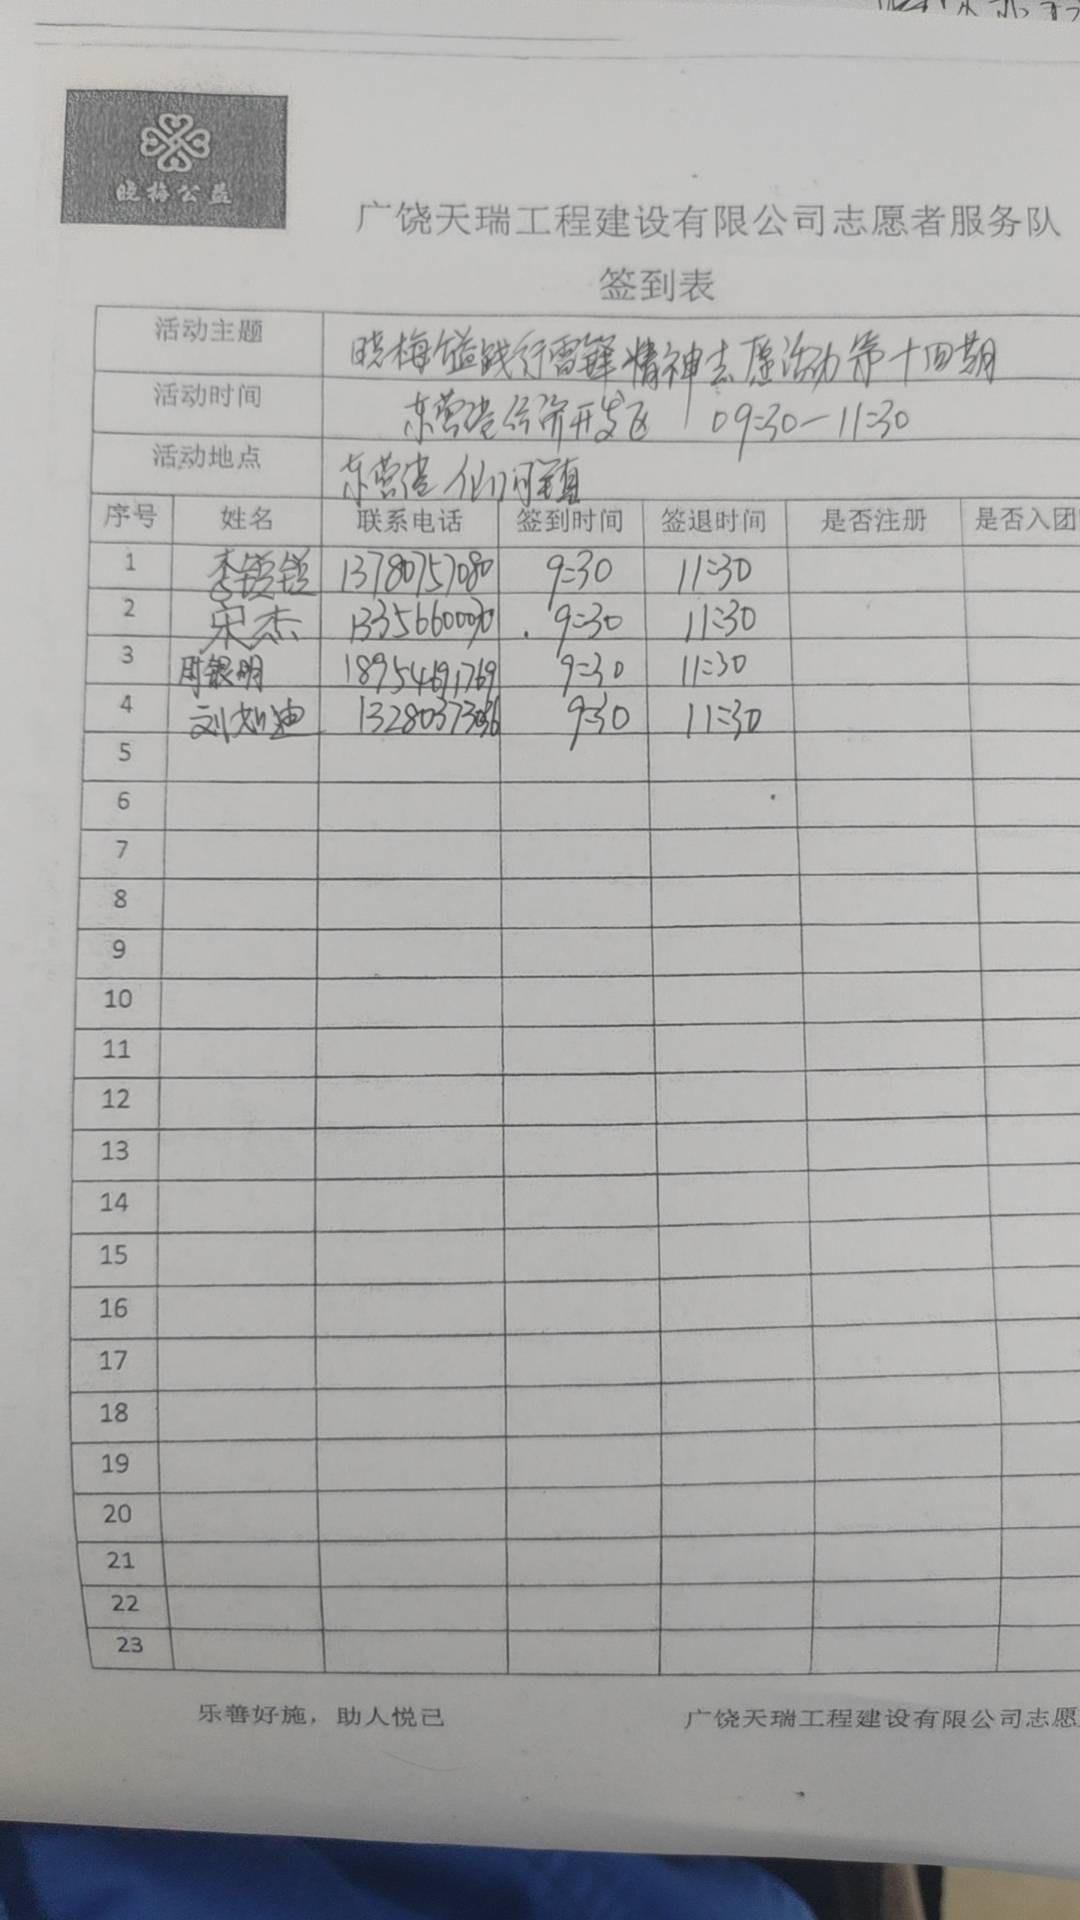 晓梅公益
广饶天瑞工程建设有限公司志愿者服务队
签到表
活动主题 晓梅公益践行雷锋精神志愿活动第十四期
活动时间 东营港经济开发区 09:30-11:30
活动地点 东营港仙河镇
序号 姓名 联系电话 签到时间 签退时间 是否注册 是否入团
1 李锐锐 13780757080 9:30 11:30
2 宋杰 13356600090 9:30 11:30
3 周银明 18954691769 9:30 11:30
4 刘如迪 9:30 11:30
5
6
7
8
9
10
11
12
13
14
15
16
17
18
19
20
21
22
23
乐善好施，助人悦己 广饶天瑞工程建设有限公司志愿